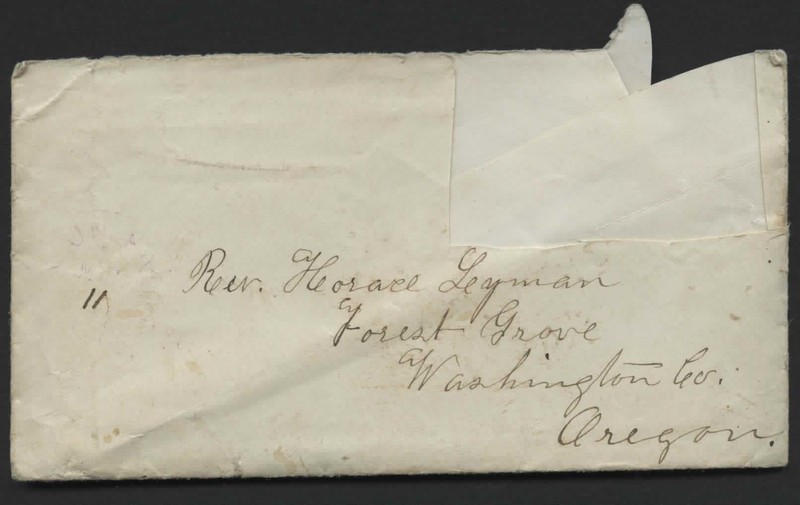 Rev. Horace Lyman
Forest Grove
Washington Co.
Oregon.
11